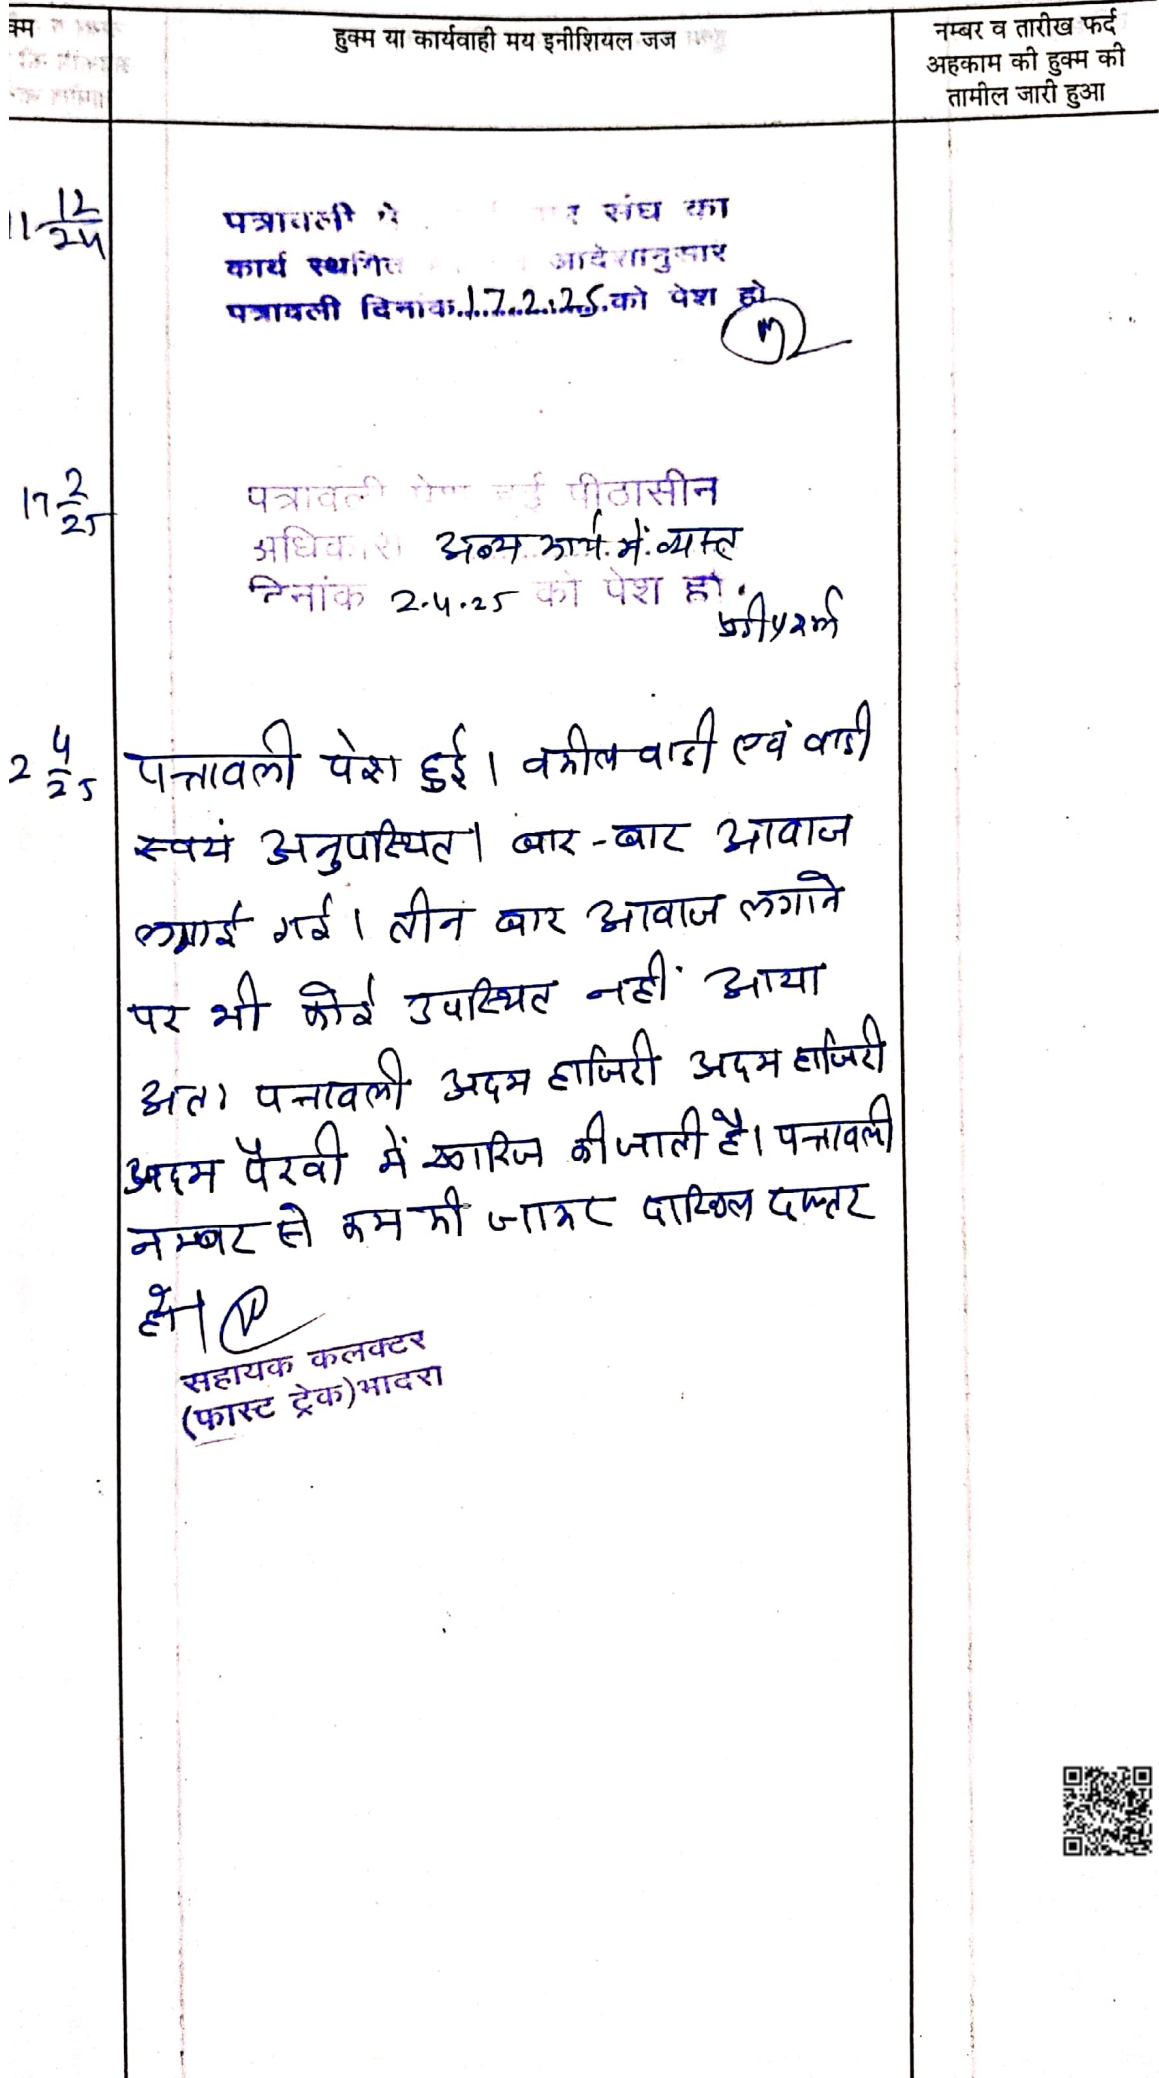 क्म
हुक्म या कार्यवाही मय इनीशियल जज
नम्बर व तारीख फर्द
अहकाम की हुक्म की
तामील जारी हुआ
11 12/24
पत्रावली पे संघ का
कार्य स्थगित आदेशानुसार
पत्रावली दिनांक 17.2.25 को पेश हो
17 2/25
पत्रावली पेश हुई पीठासीन
अधिकारी अन्य कार्य में व्यस्त
दिनांक 2.4.25 को पेश हो.
2 4/25
पत्रावली पेश हुई। वकील वादी एवं वादी
स्वयं अनुपस्थित। बार-बार आवाज
लगाई गई। तीन बार आवाज लगाने
पर भी कोई उपस्थित नहीं आया
अतः पत्रावली अदम हाजिरी अदम हाजिरी
अदम पैरवी में खारिज की जाती है। पत्रावली
नम्बर से कम की जाकर दाखिल दफ्तर
हो।
सहायक कलक्टर
(फास्ट ट्रेक) भादरा